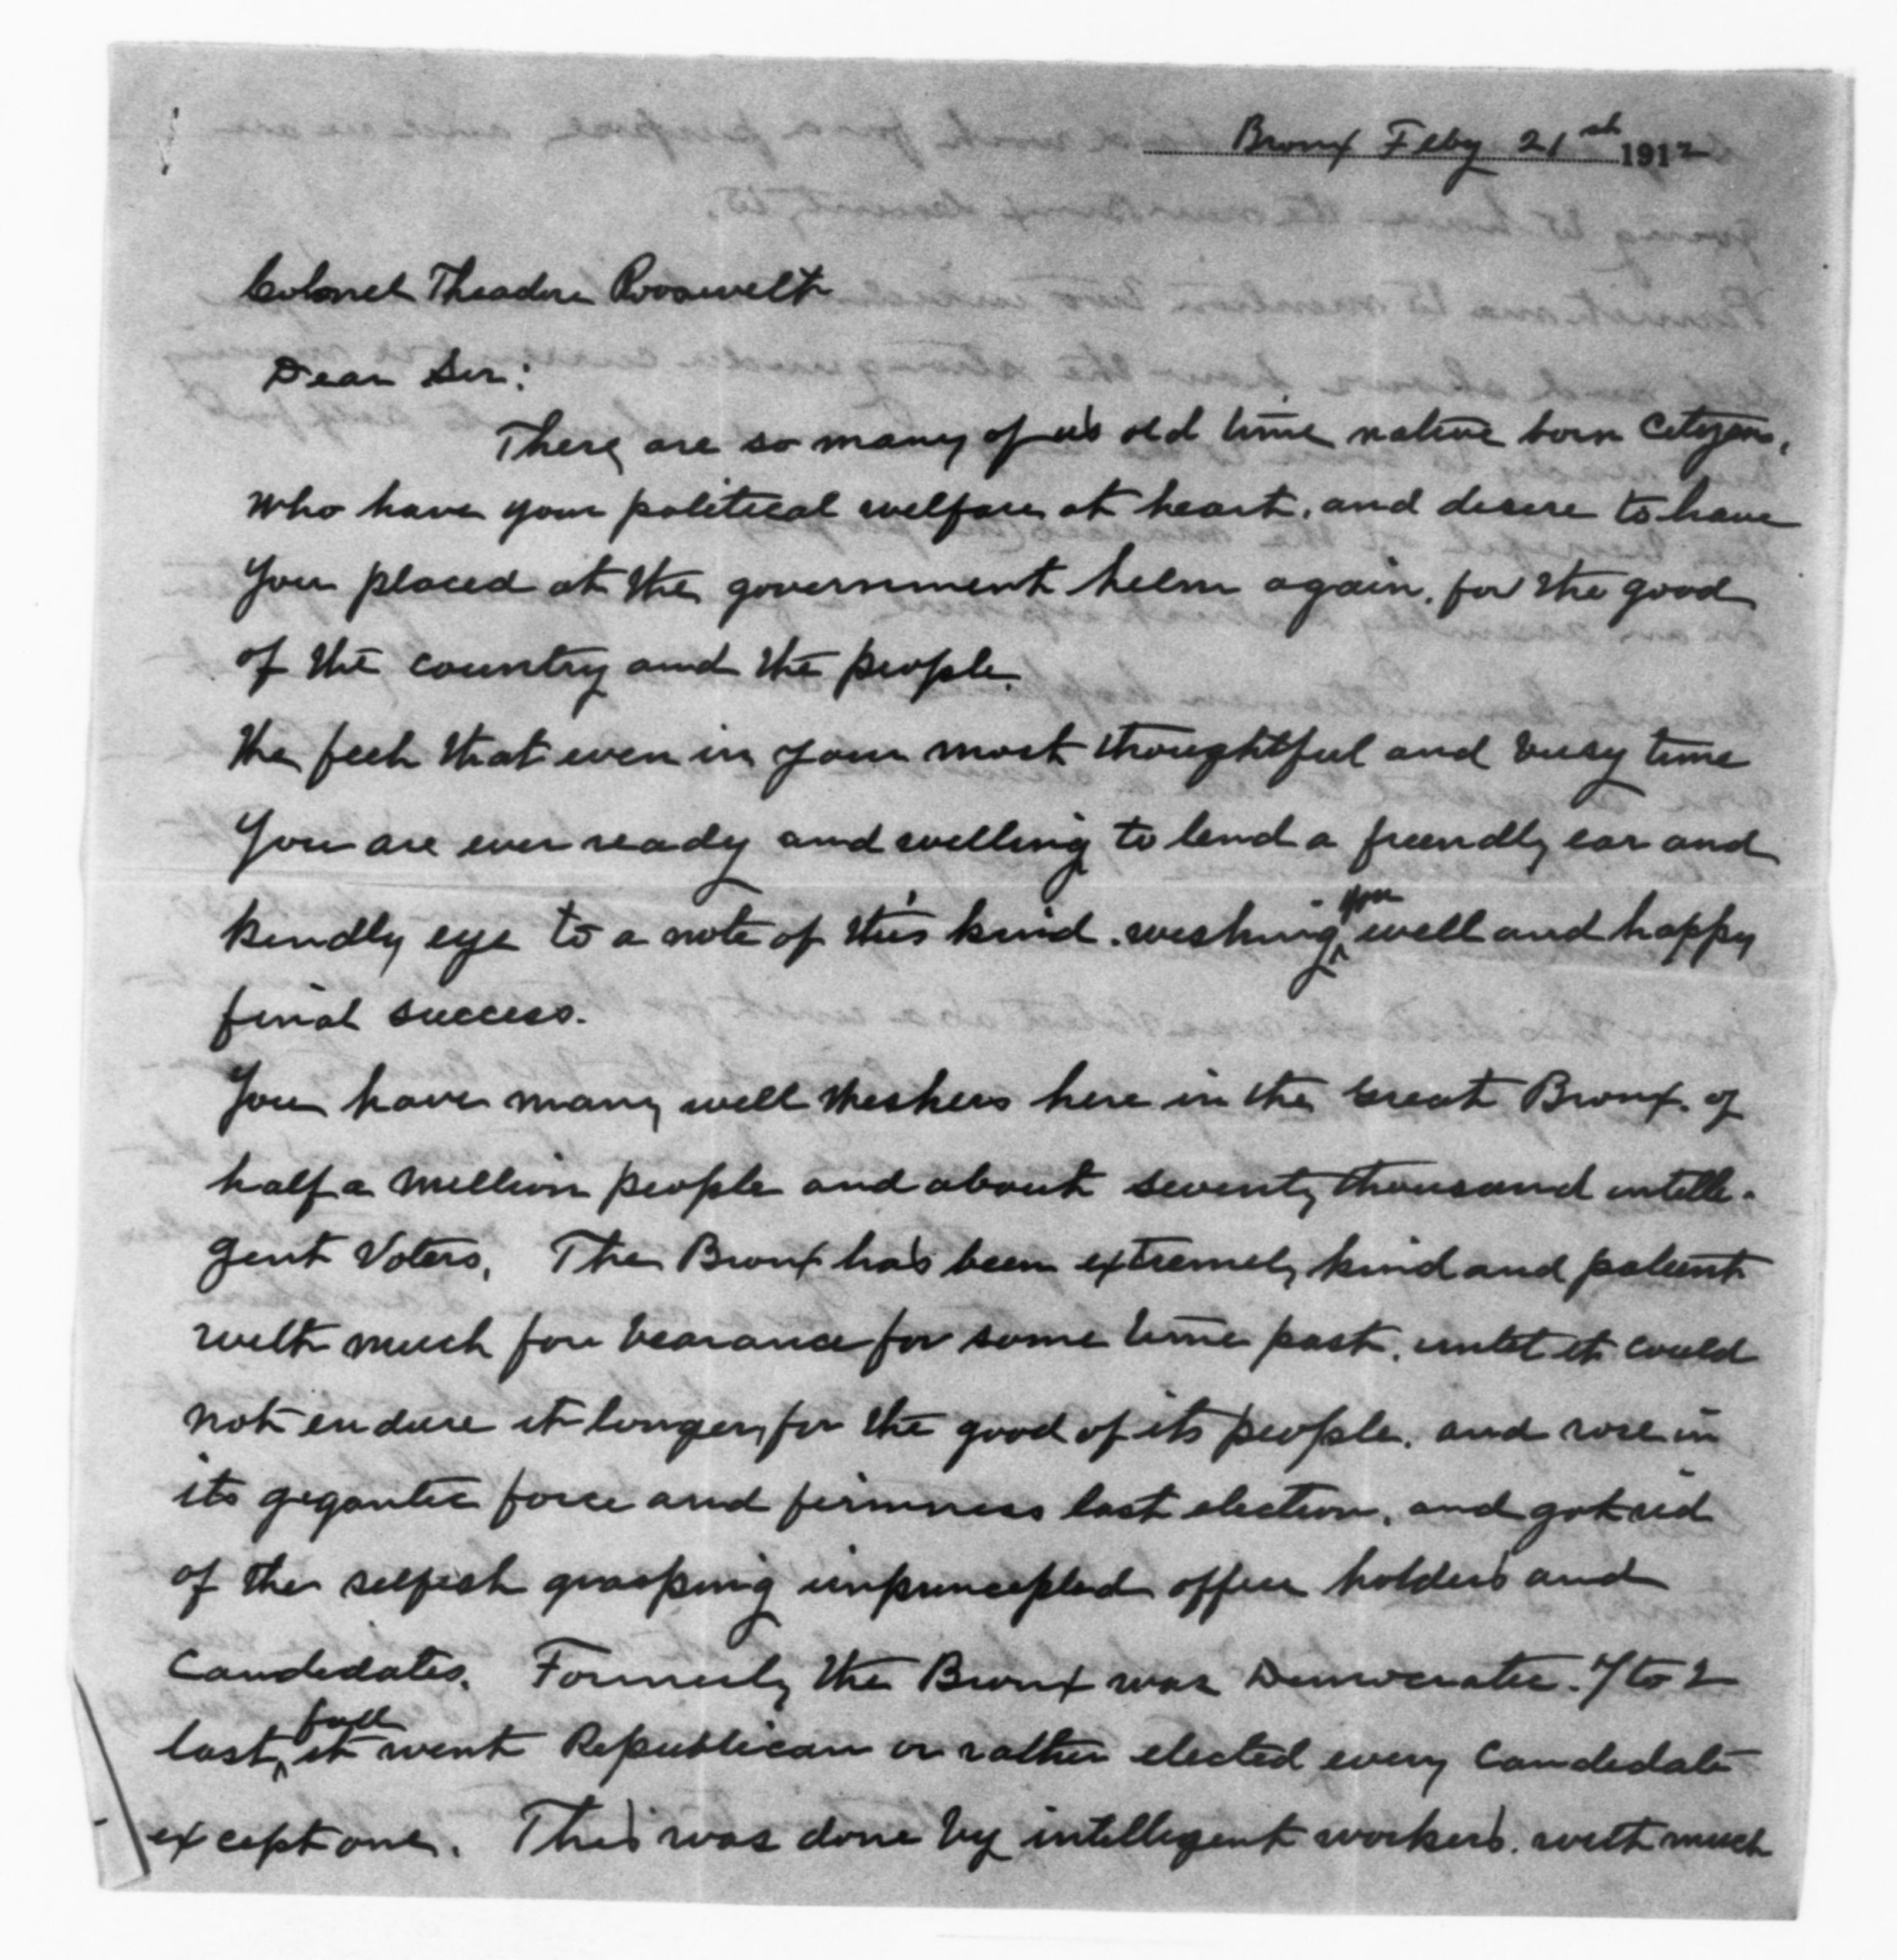 Bronx Feby 21st 1912
Colonel Theodore Roosevelt
Dear Sir:
There are so many of us old time native born Citizens,
who have your political welfare at heart, and desire to have
you placed at the government helm again, for the good
of the country and the people.
We feel that even in your most thoughtful and busy time
you are ever ready and willing to lend a friendly ear and
kindly eye to a note of this kind. wishing you well and happy
final success.
You have many well wishers here in the Great Bronx. of
half a million people and about seventy thousand intelli-
gent Voters. The Bronx has been extremely kind and patient
with much fore bearance for some time past, until it could
not endure it longer, for the good of its people, and rose in
its gigantic force and firmness last election, and got rid
of the selfish grasping unprincipled office holders and
Candidates. Formerly the Bronx was Democratic. 7 to 2
last fall it went Republican or rather elected every Candidate
except one. This was done by intelligent workers. with much